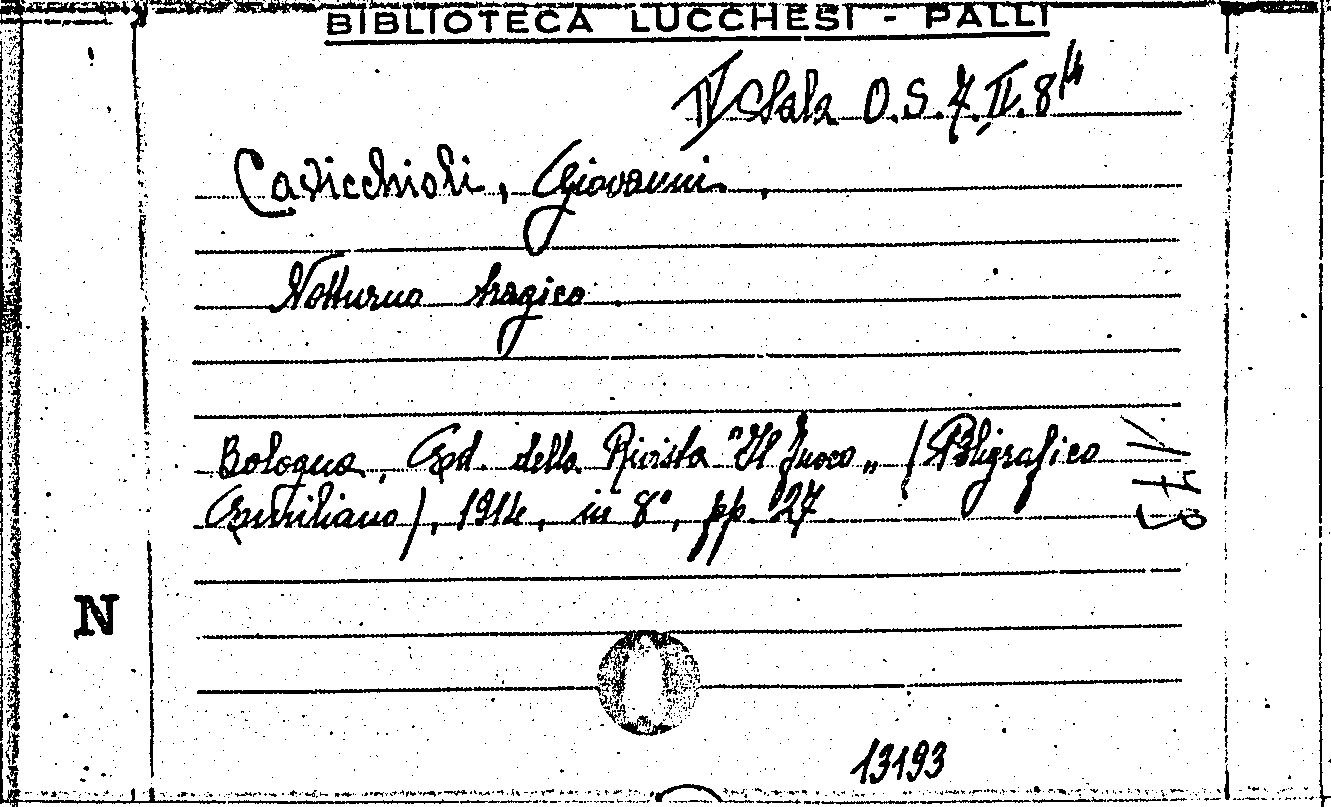 BIBLIOTECA LUCCHESI - PALLI
IV Sala O.S.7.II.8 14
Cavicchioli, Giovanni,
Notturno tragico.
Bologna, Ed. della Rivista "Il fuoco„ (Poligrafico
Emiliano), 1914, in 8°, pp. 27
N
13193